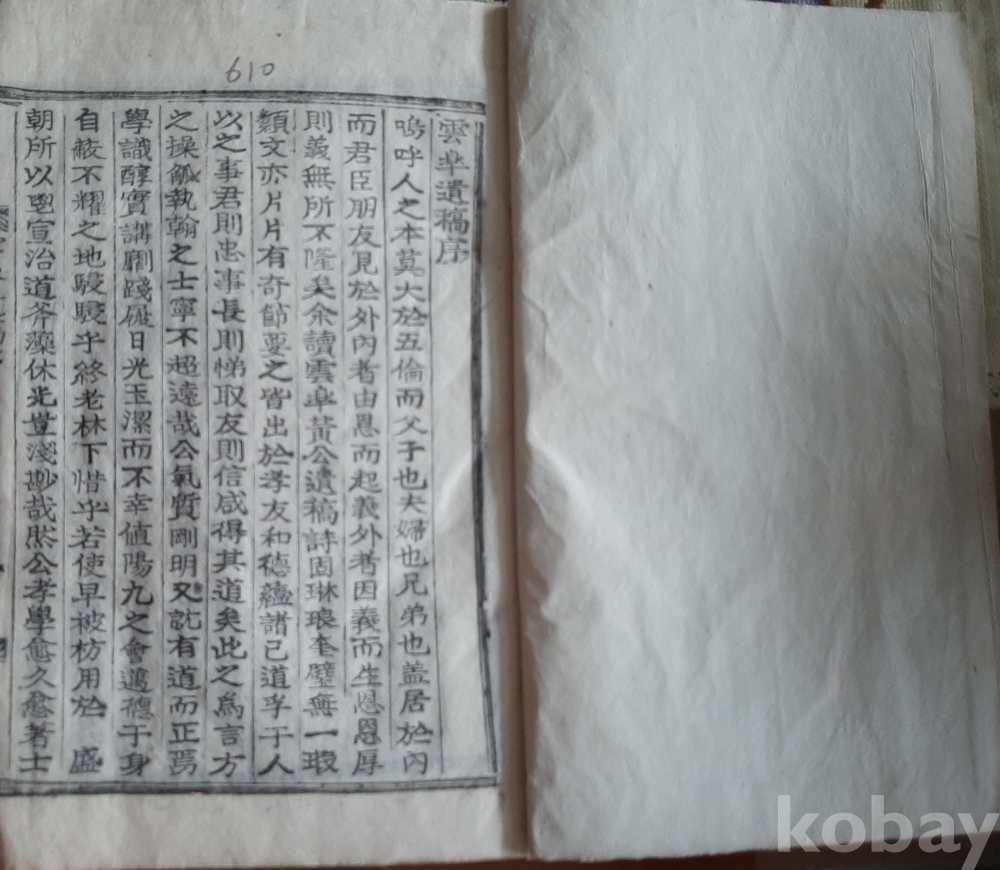 610
雲皐遺稿序
嗚呼人之本莫大於五倫而父子也夫婦也兄弟也盖居於內
而君臣朋友見於外內者由恩而起義外者因義而生恩恩厚
則義無所不隆矣余讀雲皐黃公遺稿詩固琳琅奎璧無一瑕
纇文亦片片有奇節要之皆出於孝友和德蘊諸己道孚于人
以之事君則忠事長則悌取友則信咸得其道矣此之爲言方
之操觚執翰之士寧不超遠哉公氣質剛明又就有道而正焉
學識醇實講劘踐履日光玉潔而不幸値陽九之會邁德于身
自蔽不耀之地駸駸乎終老林下惜乎若使早被枋用於 盛
朝所以宣治道斧藻休光豈淺尠哉然公孝學愈久愈著士
kobay